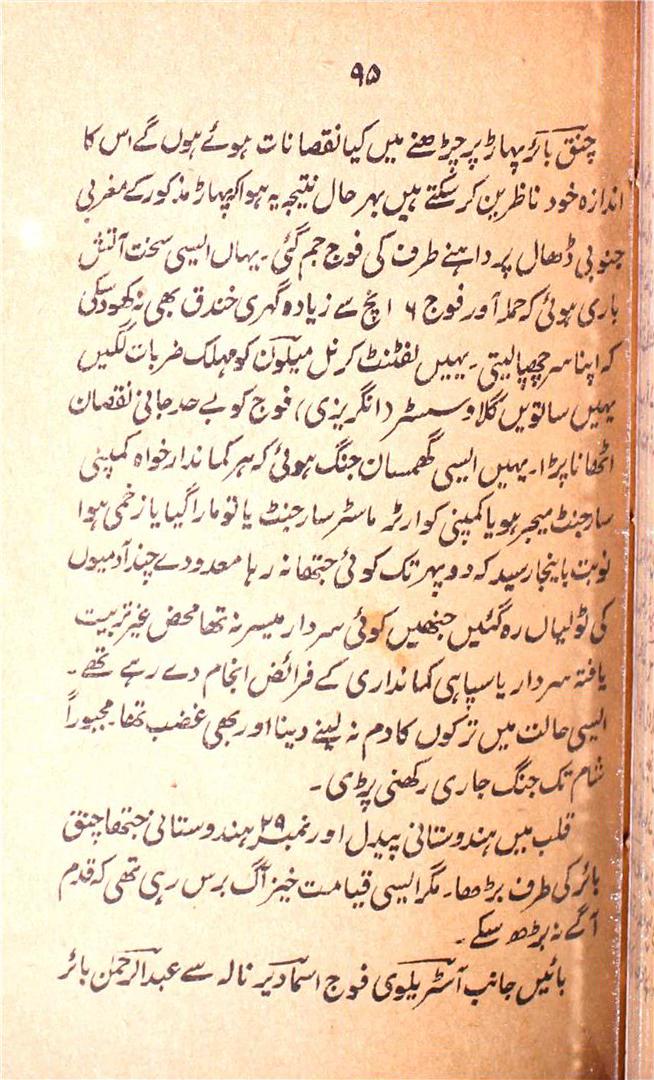 ۹۵
چنق بائر پہاڑ پر چڑھنے میں کیا نقصانات ہوئے ہوں گے اس کا
اندازہ خود ناظرین کر سکتے ہیں بہر حال نتیجہ یہ ہوا کہ پہاڑ مذکور کے مغربی
جنوبی ڈھال پر داہنے طرف کی فوج جم گئی۔ یہاں ایسی سخت آتش
باری ہوئی کہ حملہ آور فوج ۶ انچ سے زیادہ گہری خندق بھی نہ کھود سکی
کہ اپنا سر چھپا لیتی۔ یہیں لفٹنٹ کرنل میلون کو مہلک ضربات لگیں
یہیں ساتویں گلاوسسٹر (انگریزی) فوج کو بے حد جانی نقصان
اٹھانا پڑا۔ یہیں ایسی گھمسان جنگ ہوئی کہ ہر کماندار خواہ کمپنی
سارجنٹ میجر ہو یا کمپنی کوارٹر ماسٹر سارجنٹ یا تو مارا گیا یا زخمی ہوا
نوبت باینجا رسید کہ دوپہر تک کوئی جتھا نہ رہا معدودے چند آدمیوں
کی ٹولیاں رہ گئیں جنھیں کوئی سردار میسر نہ تھا محض غیر تربیت
یافتہ سردار یا سپاہی کمانداری کے فرائض انجام دے رہے تھے۔
ایسی حالت میں ترکوں کا دم نہ لینے دینا اور بھی غضب تھا۔ مجبوراً
شام تک جنگ جاری رکھنی پڑی۔
قلب میں ہندوستانی پیدل اور نمبر ۲۹ ہندوستانی جتھا چنق
بائر کی طرف بڑھا۔ مگر ایسی قیامت خیز آگ برس رہی تھی کہ قدم
آگے نہ بڑھ سکے۔
بائیں جانب آسٹریلوی فوج اسمادیر نالہ سے عبدالرحمن بائر